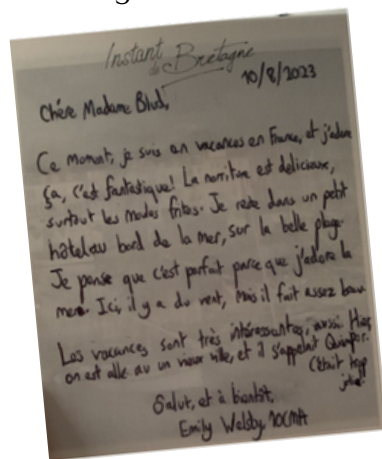 Instant
de Bretagne
10/8/2023
Chère Madame Blud,
Ce moment, je suis en vacances en France, et j'adore
ça, c'est fantastique! La norriture est delicieux,
surtout les modes frites. Je reste dans un petit
hôtel au bord de la mer, sur la belle plage.
Je pense que c'est parfait parce que j'adore la
mer. Ici, il y a du vent, mais il fait assez beau
Les vacances sont très intéressantes, aussi. Hier,
on est allé au un vieux ville, et il s'appelait Quimper.
C'était trop
jolie!
Salut, et à bientôt,
Emily Welsby 10CMH